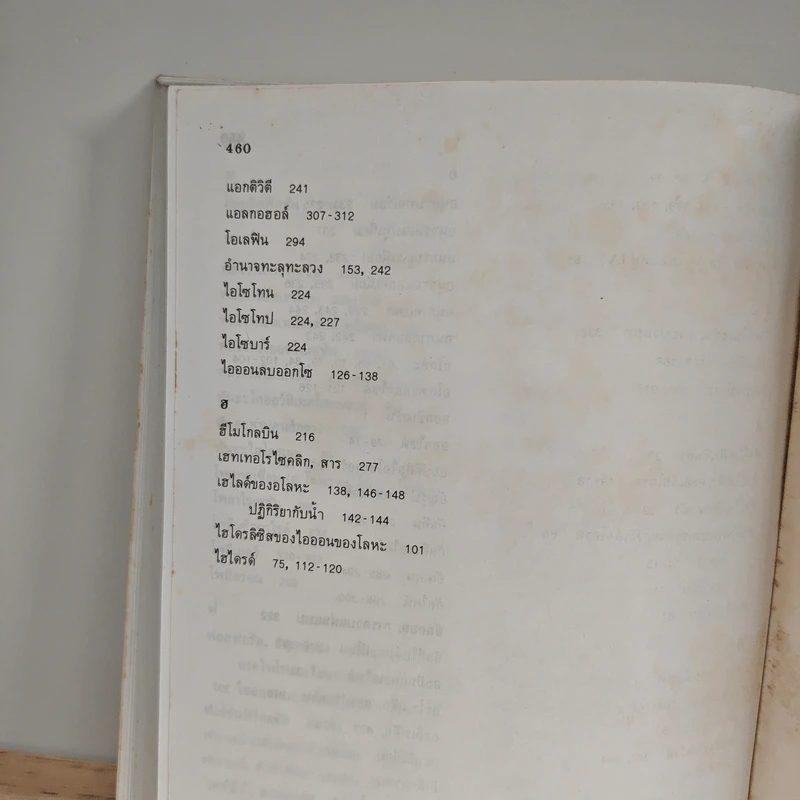 460
แอกติวิตี 241
แอลกอฮอล์ 307-312
โอเลฟิน 294
อำนาจทะลุทะลวง 153, 242
ไอโซโทน 224
ไอโซโทป 224, 227
ไอโซบาร์ 224
ไอออนลบออกโซ 126-138
ฮ
ฮีโมโกลบิน 216
เฮทเทอโรไซคลิก, สาร 277
เฮไลด์ของอโลหะ 138, 146-148
ปฏิกิริยากับน้ำ 142-144
ไฮโดรลิซิสของไอออนของโลหะ 101
ไฮไดรด์ 75, 112-120